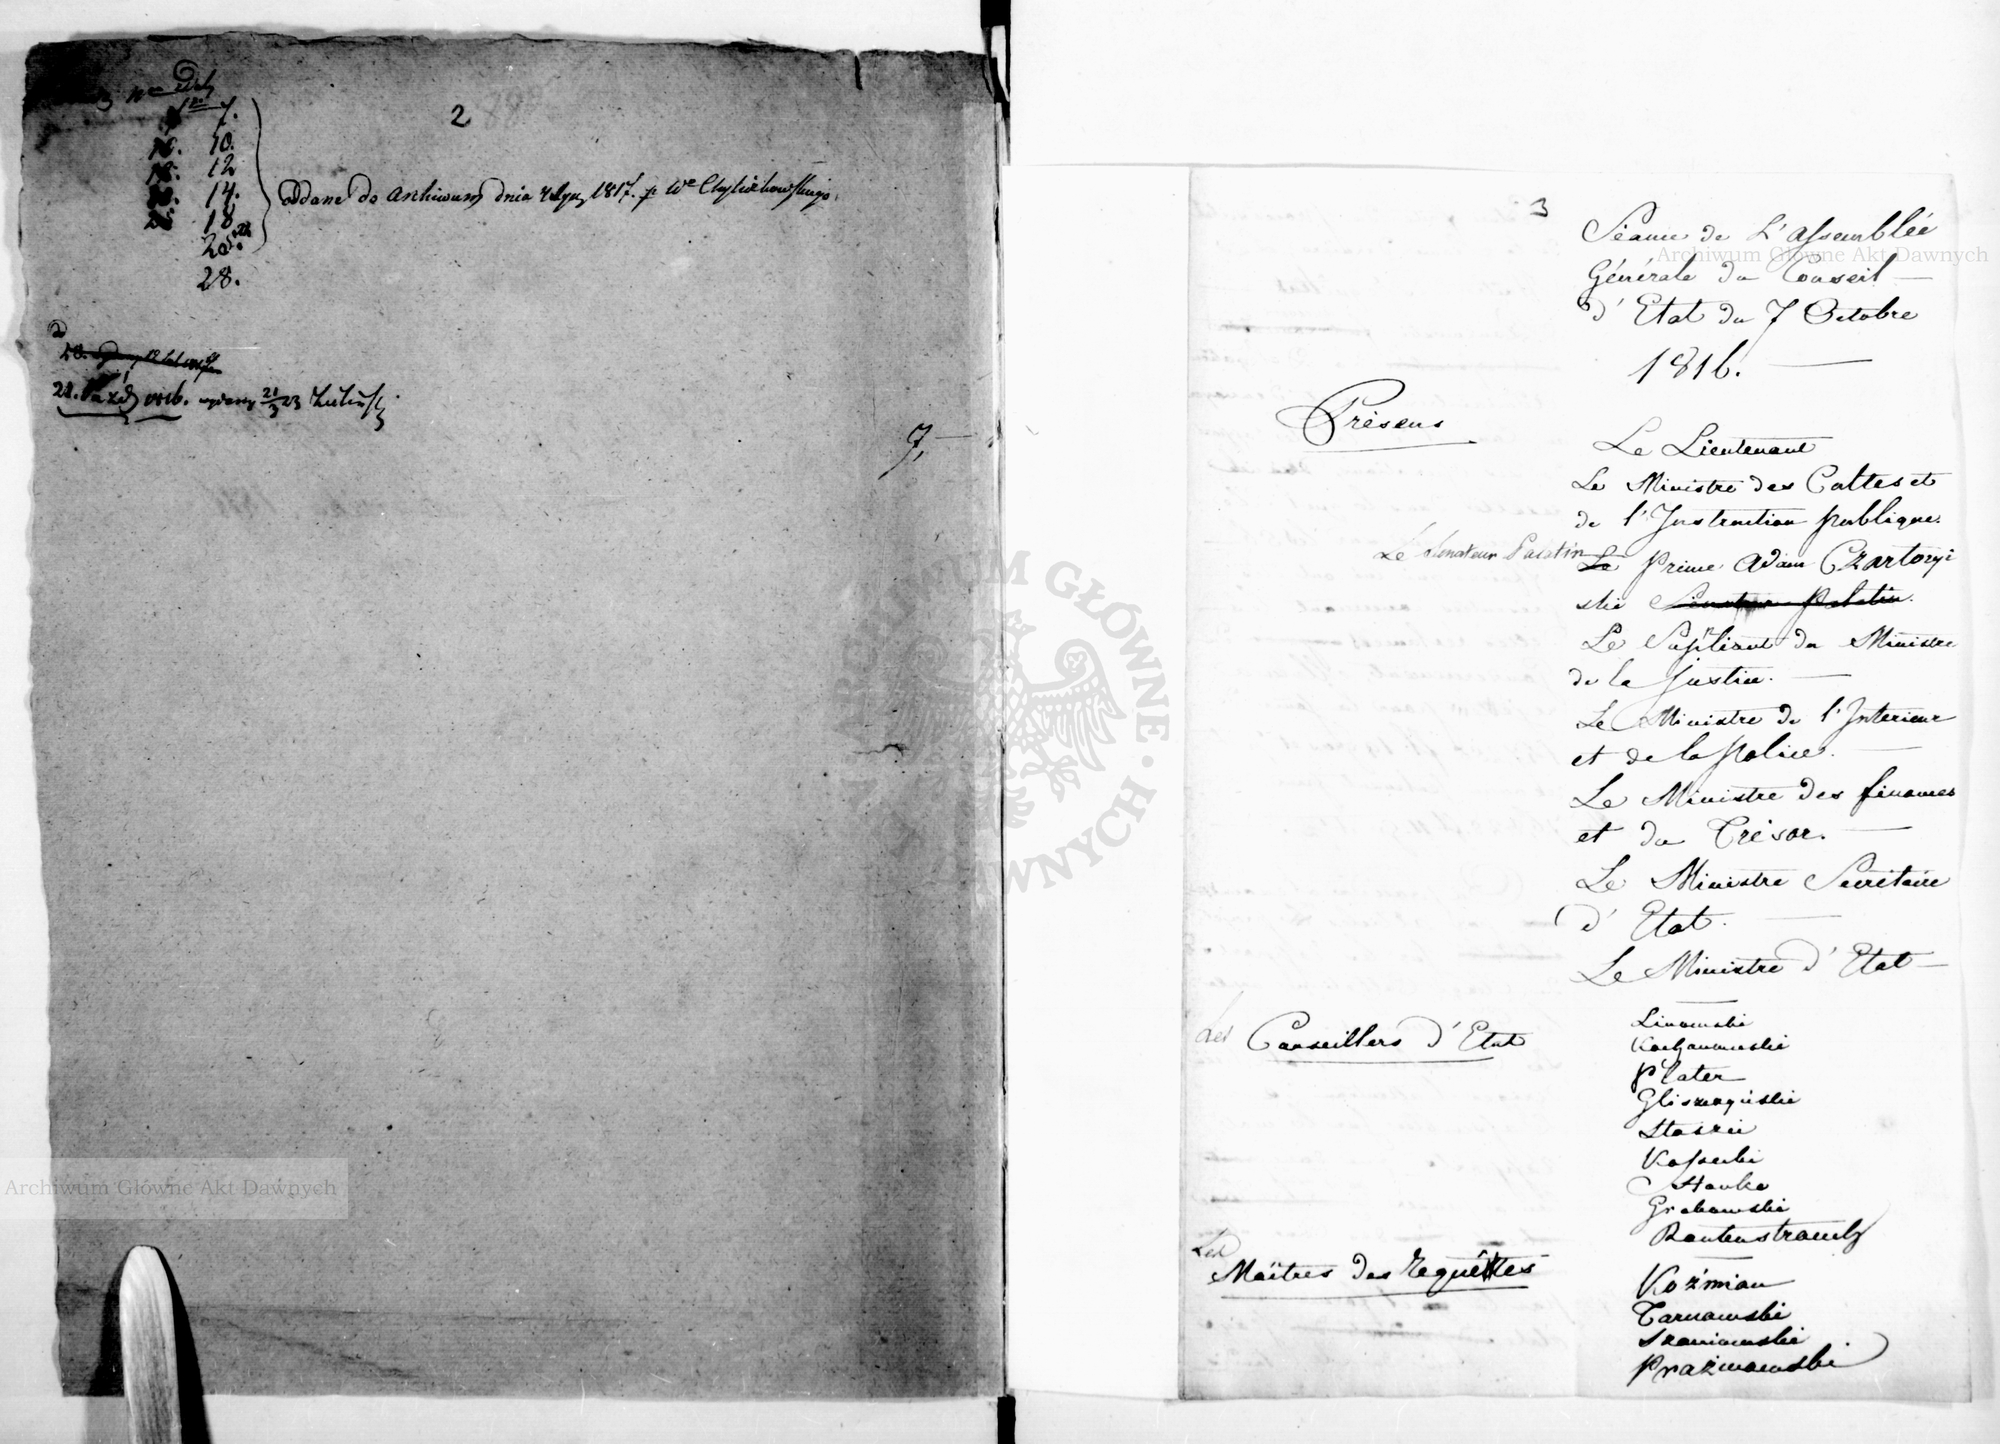 2
7.
10.
12
14.
18
28.
Oddane do Archiwum dnia 1817.
7,
Archiwum Główne Akt Dawnych
3
Séance de L'assemblée
Générale du Conseil
d'Etat du 7 Octobre
1816.
Présens
Le Lieutenant
Le Ministre des Cultes et
de l'Instruction publique.
Le Senateur Palatin
Le Prince Adam Czartoryi
ski Senateur Palatin.
Le Supleant du Ministre
de la Justice.
Le Ministre de l'Interieur
et de la police.
Le Ministre des finances
et du Trésor.
Le Ministre Secrétaire
d'Etat.
Le Ministre d'Etat
Les Conseillers d'Etat
Linowski
Kochanowski
Plater
Gliszczyński
Staszic
Kossecki
Hauke
Grabowski
Rautenstrauch
Les
Maîtres des requêttes
Koźmian
Tarnowski
Szaniawski
Prażmowski
ARCHIWUM GŁÓWNE AKT DAWNYCH
Archiwum Główne Akt Dawnych